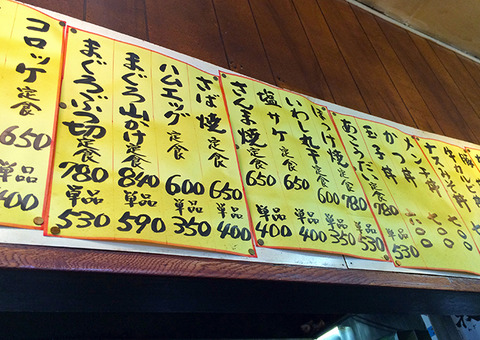 コロッケ定食 650 単品 400
まぐろぶつ切定食 780 単品 530
まぐろ山かけ定食 840 単品 590
ハムエッグ定食 600 単品 350
さば焼定食 650 単品 400
さんま焼定食 650 単品 400
塩サケ定食 650 単品 400
いわし丸干定食 600 単品 350
ほっけ焼定食 780 単品 530
玉子丼
かつ丼
メンチ丼 700
ナスみそ丼 700